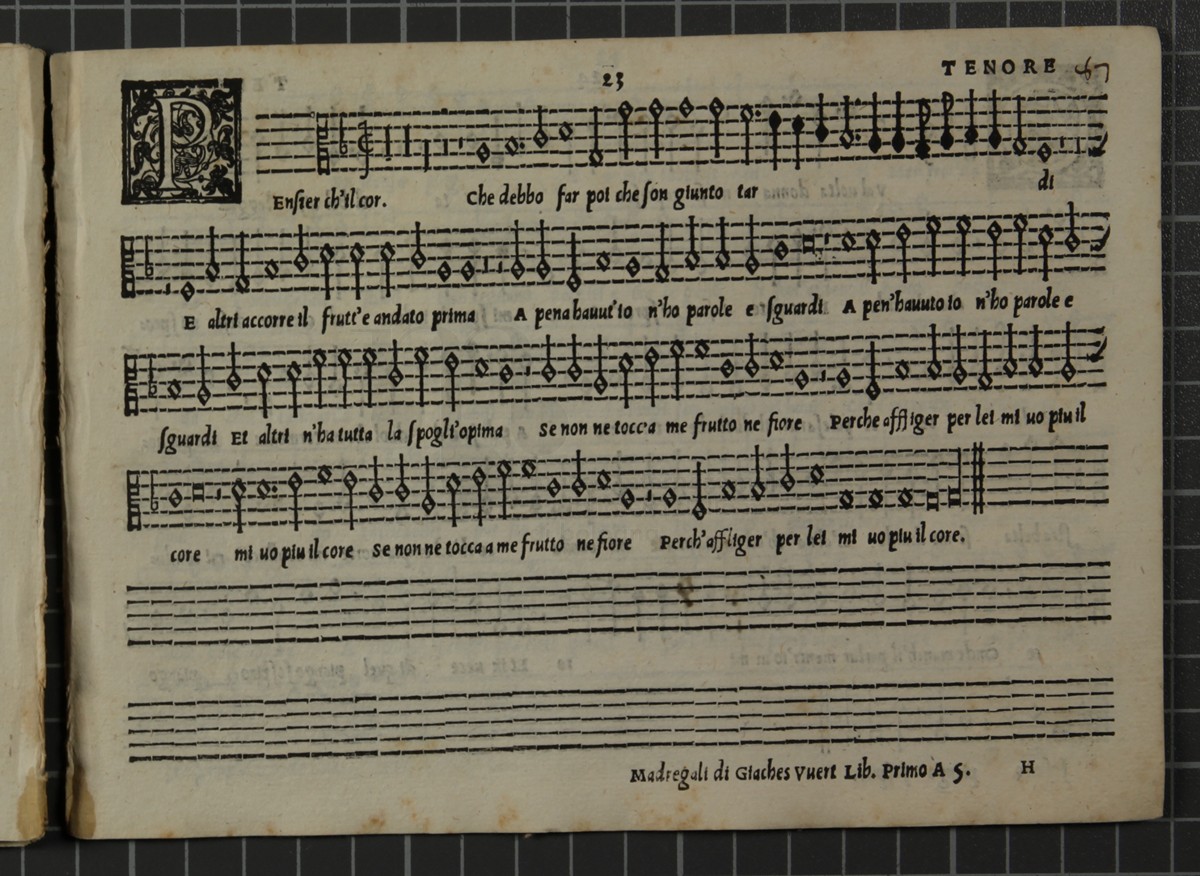 23
TENORE 57
PEnsier ch'il cor. Che debbo far poi che son giunto tar di
E altri accorre il frutt'e andato prima A pena hauut'io n'ho parole e sguardi A pen'hauuto io n'ho parole e
sguardi Et altri n'ha tutta la spogli'opima Se non ne tocc'a me frutto ne fiore Perche affliger per lei mi uo piu il
core mi uo piu il core Se non ne tocca a me frutto ne fiore Perch'affliger per lei mi uo piu il core.
Madregali di Giaches Vuert Lib. Primo A 5. H